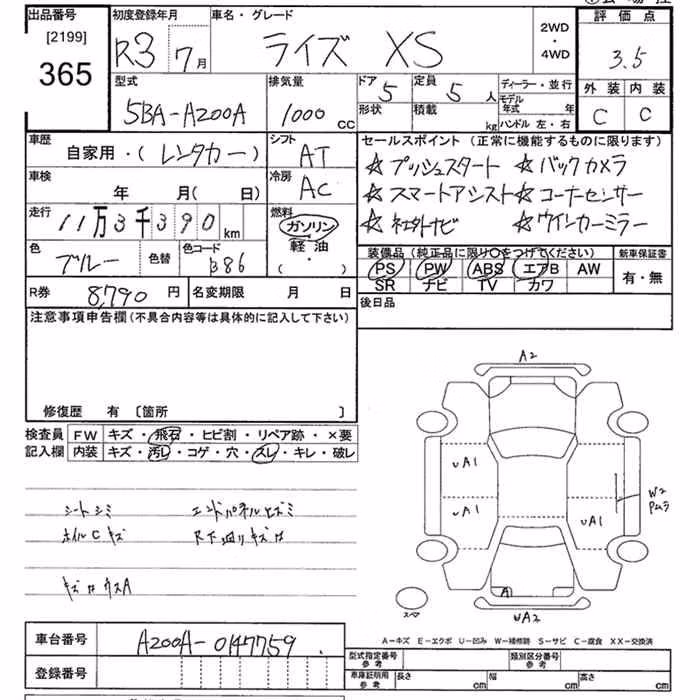 出品番号
[2199]
365
初度登録年月
R3 7月
車名・グレード
ライズ XS
2WD
・
4WD
評価点
3.5
外装 内装
C C
型式
5BA-A200A
排気量
1000 cc
ドア 5
定員 5 人
形状
積載 kg
ディーラー・並行
モデル年式 年
ハンドル 左・右
車歴
自家用・(レンタカー)
シフト
AT
車検
年 月(日)
冷房
AC
走行
11万3千390km
燃料
ガソリン
軽油
(・)
色
ブルー
色替
色コード
B86
セールスポイント(正常に機能するものに限ります)
☆プッシュスタート ☆バックカメラ
☆スマートアシスト ☆コーナーセンサー
☆社外ナビ ☆ウインカーミラー
装備品(純正品に限り○をつけてください)
PS PW ABS エアB AW
SR ナビ TV カワ
新車保証書
有・無
R券 8,790円
名変期限 月 日
後日品
注意事項申告欄(不具合内容等は具体的に記入して下さい)
修復歴 有 〔箇所 〕
検査員記入欄
FW キズ・飛石・ヒビ割・リペア跡・×要
内装 キズ・汚レ・コゲ・穴・スレ・キレ・破レ
シートシミ エンドパネルヒズミ
ホイルCキズ R下廻りキズ
A2
UA1
UA1
UA1
W2
Pムラ
A
UA2
スペア
A-キズ E-エクボ U-凹み W-補修跡 S-サビ C-腐食 XX-交換済
車台番号
A200A-0147759
登録番号
型式指定番号
参考
類別区分番号
参考
車庫証明用
参考
長さ cm 幅 cm 高さ cm